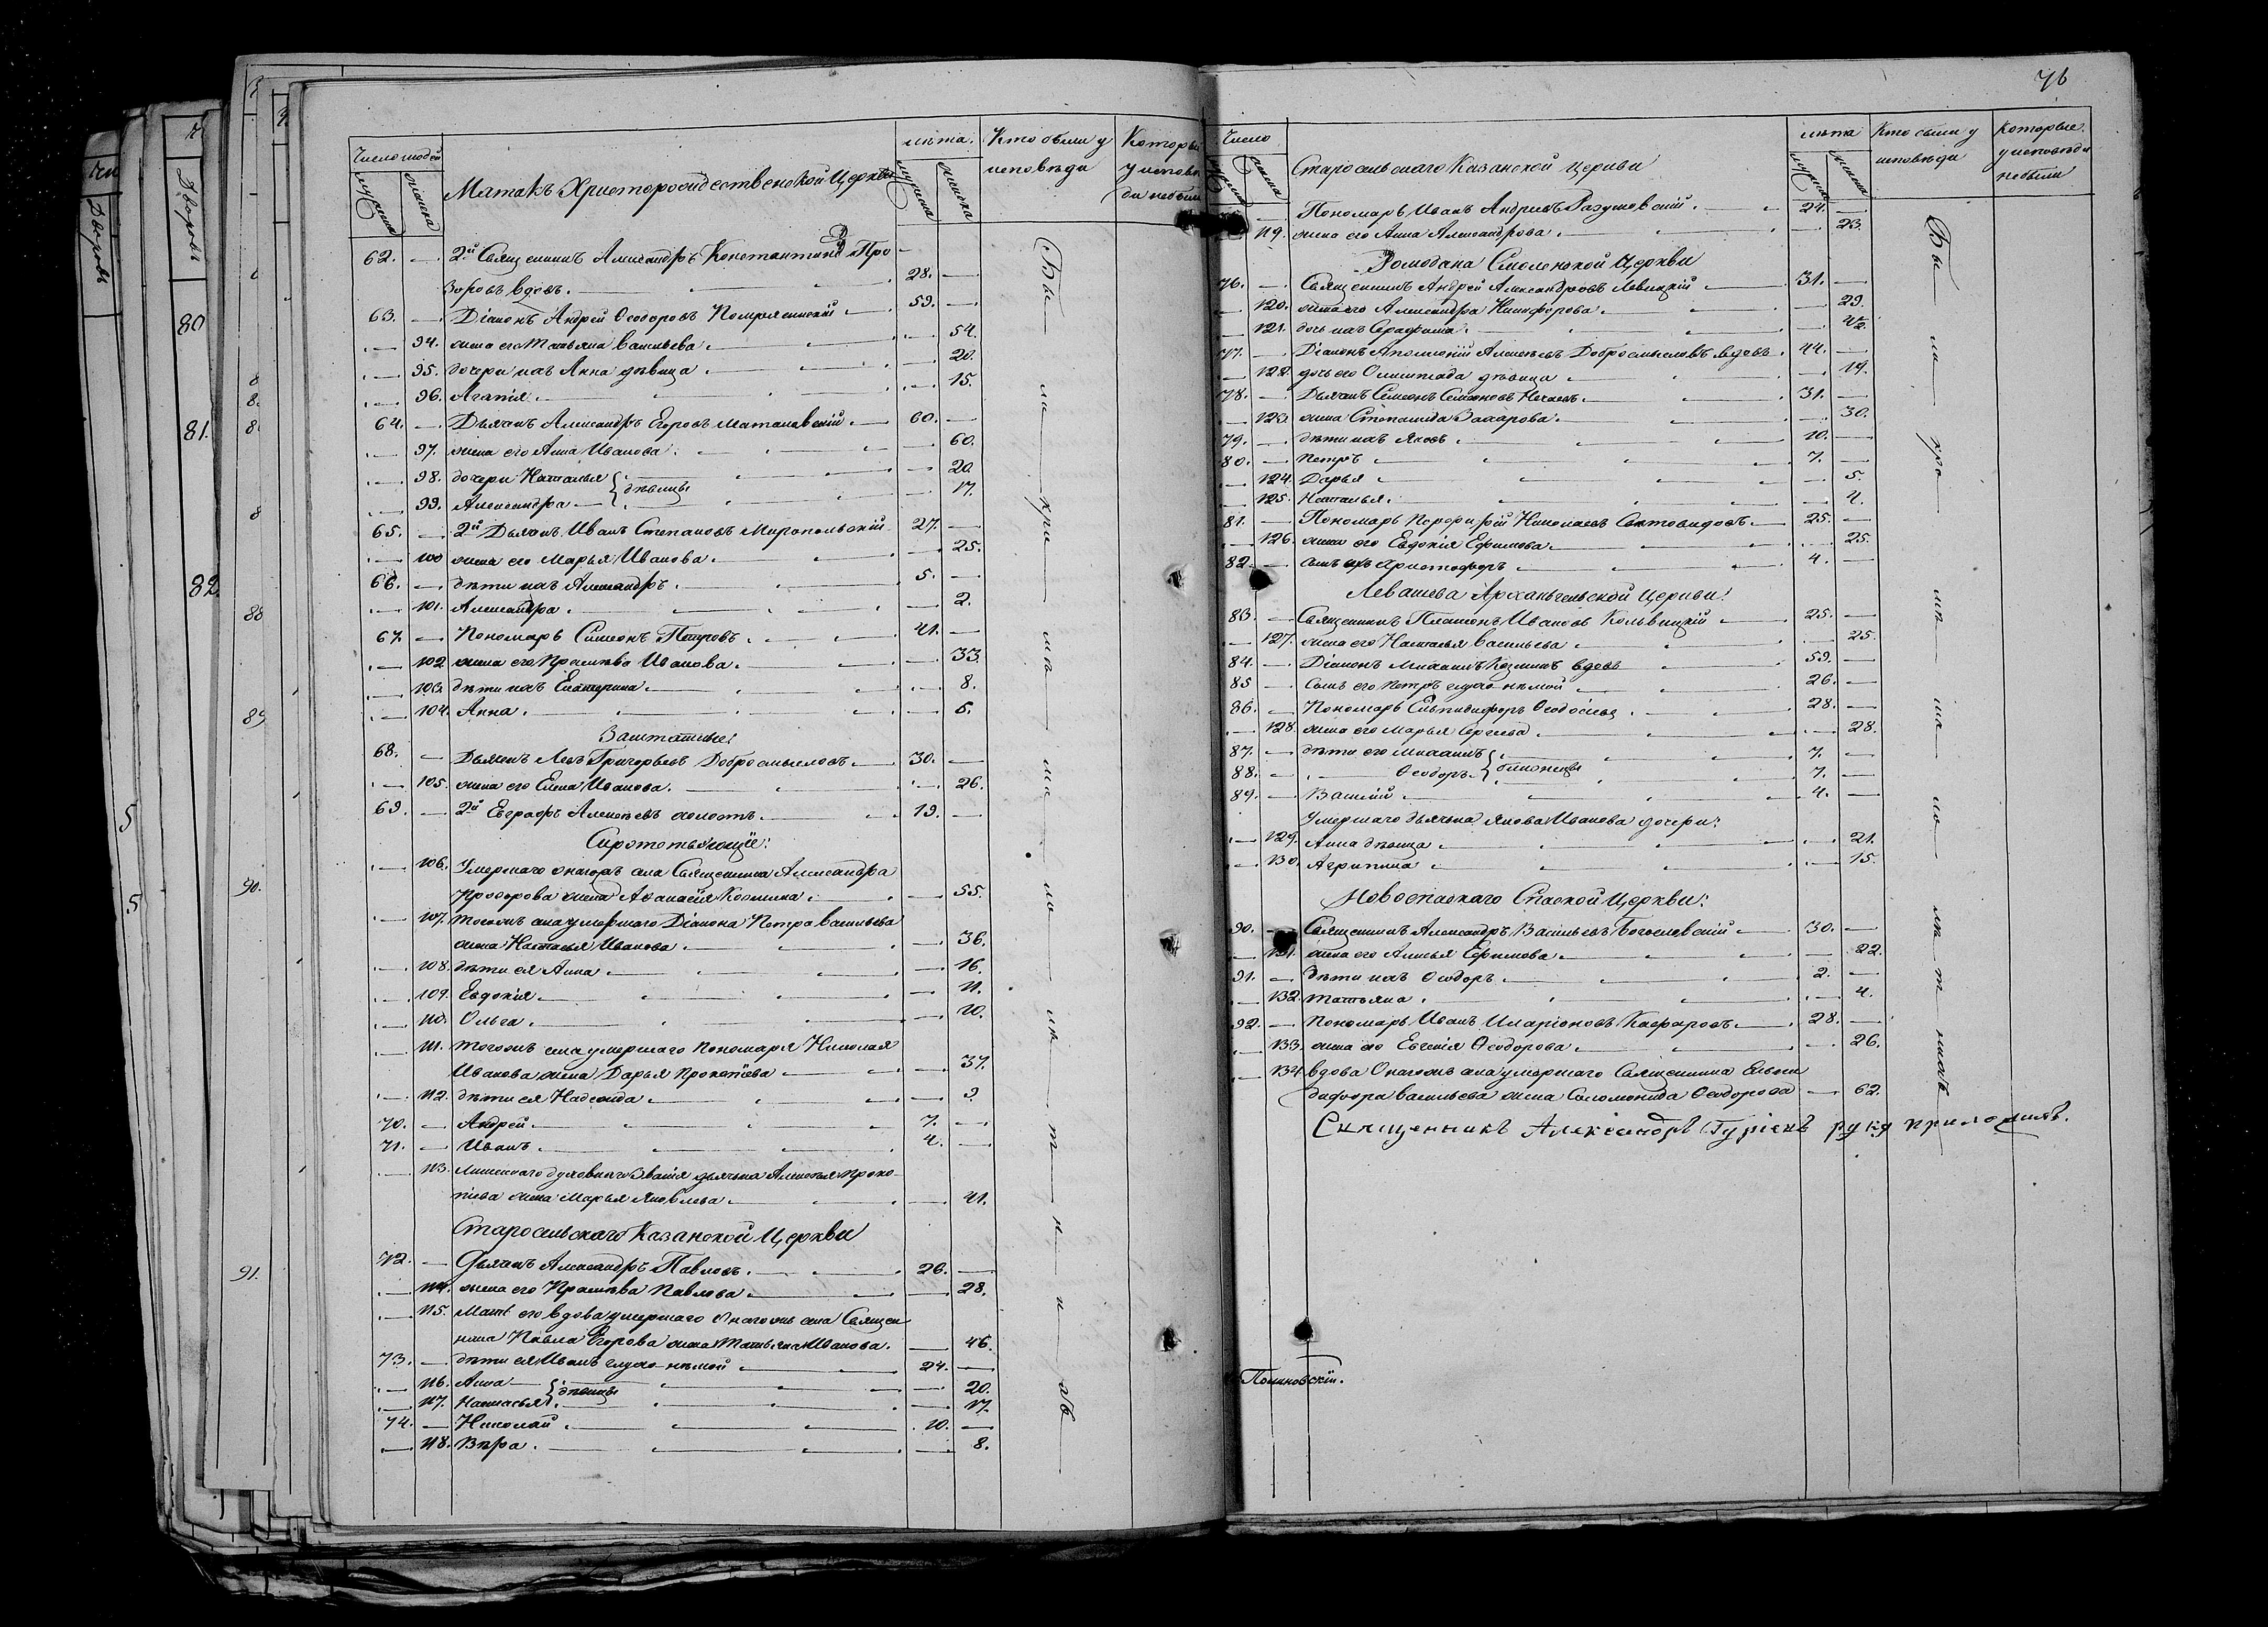 Число людей
мужеска
женска
Матакъ Христорождественской Церкви
лѣта.
мужеска
женска
Кто были у
исповѣди
Которые
у исповѣ
ди не были
62. — 2й Священникъ Александръ Константиновъ Про
зоровъ вдовъ. 28. —
63. — Діаконъ Андрей Ѳеодоровъ 59. —
— 94. жена его Татьяна Васильева — 54.
— 95. дочери ихъ Анна дѣвица — 20.
— 96. Агапія — 15.
64. — Дьячекъ Александръ Егоровъ 60. —
— 97. жена его Анна Иванова — 60.
— 98. дочери Наталья — 20.
дѣвицы
— 99. Александра — 17.
65. — 2й Дьячекъ Иванъ Степановъ Миропольскій 27. —
— 100 жена его Марья Иванова — 25.
66. — дѣти ихъ Александръ 5. —
— 101. Александра — 2.
67. — Пономарь Симеонъ Петровъ 41. —
— 102 жена его Прасковья Иванова — 33.
— 103. дѣти ихъ Екатерина — 8.
— 104. Анна — 5.
Заштатные:
68. — Дьячекъ Левъ Григорьевъ Добросмысловъ 30. —
— 105. жена его Елена Иванова — 26.
69. — 2й Евграфъ Алексѣевъ холостъ 19. —
Сиротствующіе:
— 106. Умершаго онагожъ села Священника Александра
Прозорова жена Аѳанасія Козмина — 55.
— 107. тогожъ села умершаго Діакона Петра Васильева
жена Настасья Иванова — 36.
— 108. дѣти ея Анна — 16.
— 109. Евдокія — 11.
— 110. Ольга — 10.
— 111. тогожъ села умершаго Пономаря Николая
Иванова жена Дарья Прокопіева — 37.
— 112. дѣти ея Надежда — 9.
70. — Андрей 7. —
71. — Иванъ 4. —
— 113. Лишеннаго духовнаго званія дьячка Алексѣя Проко-
піева жена Марья Яковлева — 41.
Старосельскаго Казанской Церкви
72. — Дьячекъ Александръ Павловъ 26. —
— 114. жена его Прасковья Павлова — 28.
— 115. Мать его вдова умершаго онагожъ села Священ
ника Павла Егорова жена Татьяна Иванова. — 46.
73. — дѣти ея Иванъ глухо-нѣмой 24. —
— 116. Анна — 20.
дѣвицы
— 117. Настасья — 17.
74. — Николай 10. —
— 118. Вѣра — 8.
76
Число
мужеска
женска
Старосельскаго Казанской Церкви
лѣта
мужеска
женска
Кто были у
исповѣди
Которые
у исповѣди
не были
— Пономарь Иванъ Андреевъ Разумовскій 24. —
119. жена его Анна Александрова — 23.
Ромодана Смоленской Церкви
76. — Священникъ Андрей Александровъ Левицкій 31. —
— 120. жена его Александра Никифорова — 29.
— 121. дочь ихъ Серафима — ½.
77. — Діаконъ Аполлоній Алексѣевъ Добросмысловъ вдовъ 44. —
— 122 дочь его Олимпіада дѣвица — 19.
78. — Дьячекъ Симеонъ Семеновъ Нечаевъ 31. —
— 123. жена Степанида Захарова — 30.
79. — дѣти ихъ Яковъ 10. —
80. — Петръ 7. —
— 124. Дарья — 5.
— 125. Наталья — 4.
81. — Пономарь Порфирій Николаевъ Свѣтовидовъ 25. —
— 126. жена его Евдокія Ефимова — 25.
82. — сынъ ихъ Христофоръ 4. —
Левашева Архангельской Церкви:
83. — Священникъ Платонъ Ивановъ Кольвицкій 25. —
— 127. жена его Настасья Васильева — 25.
84. — Діаконъ Михаилъ Козминъ вдовъ 59. —
85 — сынъ его Петръ глухо-нѣмой 26. —
86. — Пономарь Елпидифоръ Ѳеодосіевъ 28. —
— 128. жена его Марья Сергѣева — 28.
87. — дѣти его Михаилъ 7. —
близнецы
88. — Ѳеодоръ 7. —
89. — Василій 4. —
Умершаго дьячка Якова Иванова дочери:
— 129. Анна дѣвица — 21.
— 130. Агрипина — 15.
Новоспаскаго Спаской Церкви:
90. — Священникъ Александръ Васильевъ Богословскій 30. —
— 131. жена его Анисья Ефимова — 22.
91. — Дѣти ихъ Ѳеодоръ 2. —
— 132. Татьяна — 4.
92. — Пономарь Иванъ Иларіоновъ Кафаровъ 28. —
— 133. жена его Евгенія Ѳеодорова — 26.
— 134. вдова онагожъ села умершаго Священника Елпи
дифора Васильева жена Соломонида Ѳеодорова — 62.
Священникъ Александръ Гуріевъ руку приложилъ.